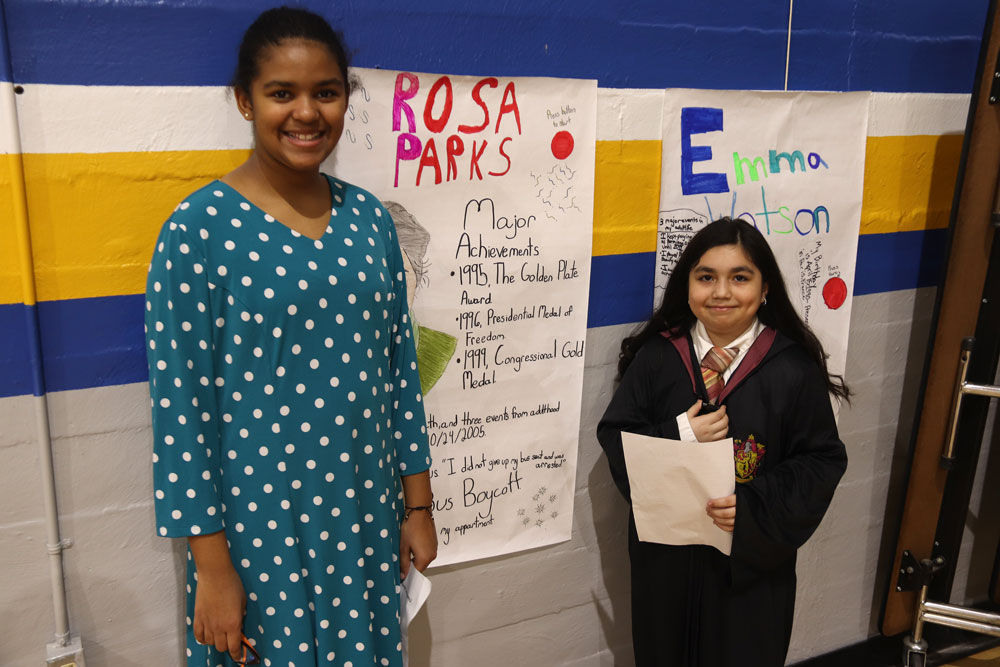 ROSA
PARKS
Press button
to start
Major
Achievements
• 1995, The Golden Plate
Award
• 1996, Presidential Medal of
Freedom
• 1999, Congressional Gold
Medal
and three events from adulthood
0/24/2005.
"I did not give up my bus seat and was
arrested"
Bus Boycott
my appartment
Emma
Watson
3
major events in
my adulthood
My Birthday
is April